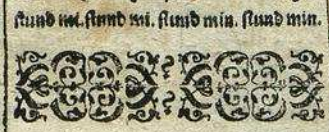 stund mi. stund mi. stund min. stund min.